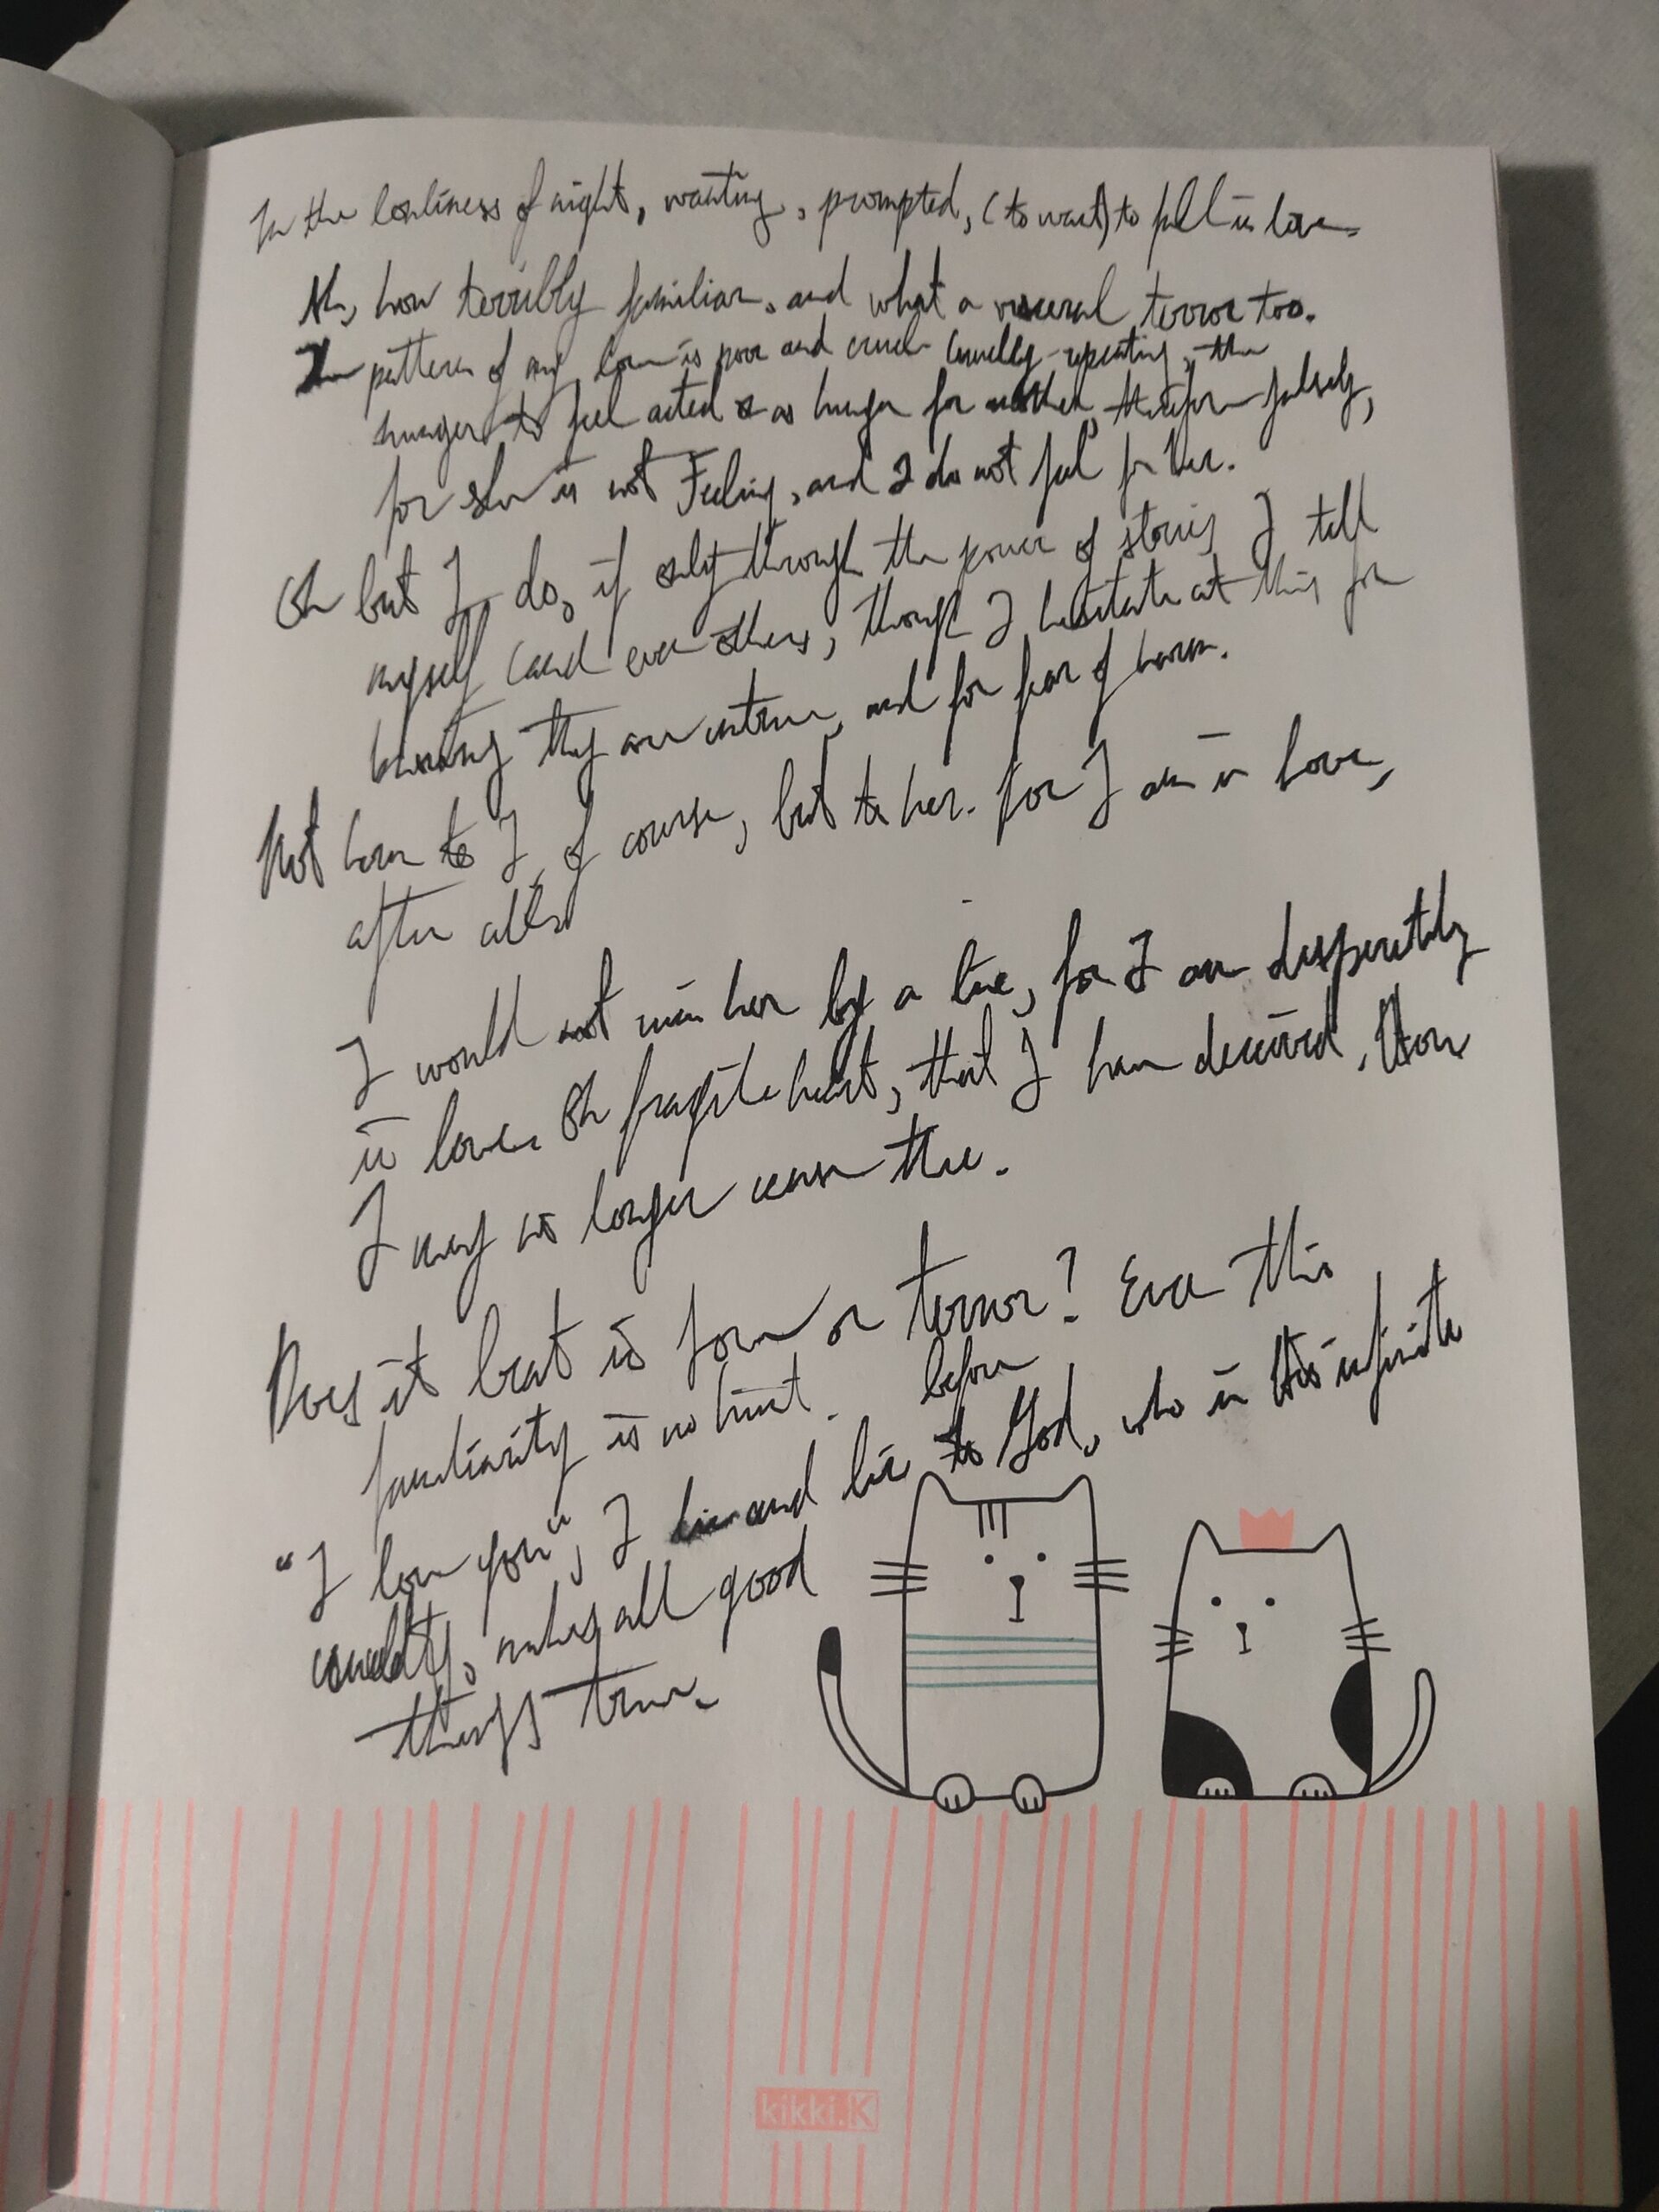 In the lonliness of night, wanting, prompted, (to want) to fall in love.
Ah, how terribly familiar, and what a visceral terror too.
The pattern of my love is poor and cruel cruelly repeating, the
hunger to feel acted as hunger for another, therefore falsely,
for she is not Feeling, and I do not feel for her.
Oh but I do, if only through the power of stories I tell
myself (and even others, though I hesitate at this for
knowing they are untrue, and for fear of harm.
Not harm to I, of course, but to her. For I am in love,
after all.
I would not win her by a lie, for I am desperately
in love. Oh fragile heart, that I have deceived, How
I may no longer see thee.
Does it beat in form or terror? Even this
familiarity is no hint. before
"I love you", I and lie to God, who in His infinite
cruelty, makes all good
things true.
kikki.K